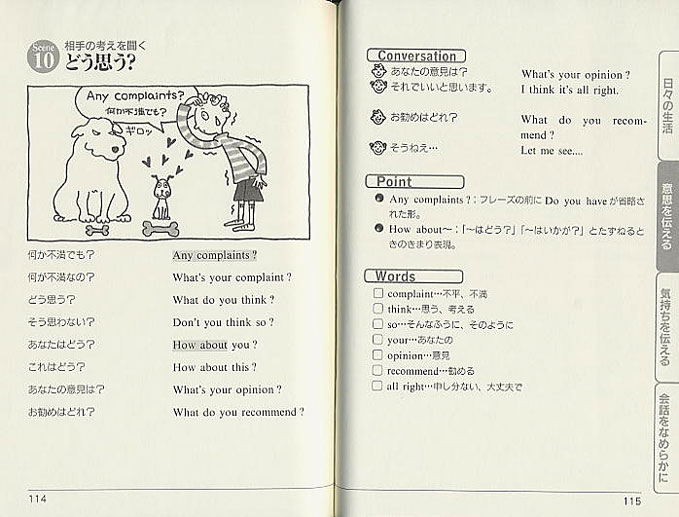 Scene 10
相手の考えを聞く
どう思う?
Any complaints?
何か不満でも?
ギロッ
何か不満でも? Any complaints ?
何が不満なの? What's your complaint ?
どう思う? What do you think ?
そう思わない? Don't you think so ?
あなたはどう? How about you ?
これはどう? How about this ?
あなたの意見は? What's your opinion ?
お勧めはどれ? What do you recommend ?
114
Conversation
あなたの意見は? What's your opinion ?
それでいいと思います。 I think it's all right.
お勧めはどれ? What do you recom-
mend ?
そうねえ… Let me see....
Point
Any complaints ? : フレーズの前に Do you have が省略さ
れた形。
How about〜 : 「〜はどう?」「〜はいかが?」とたずねると
きのきまり表現。
Words
complaint…不平、不満
think…思う、考える
so…そんなふうに、そのように
your…あなたの
opinion…意見
recommend…勧める
all right…申し分ない、大丈夫で
日々の生活
意思を伝える
気持ちを伝える
会話をなめらかに
115